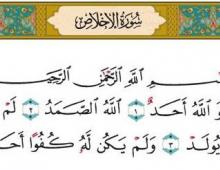 سُورَةُ الإِخْلَاصِ
ـسْمِ ٱللَّهِ ٱلرَّحْمَٰنِ ٱلرَّحِيـ
ـوَ ٱللَّهُ أَحَدٌ ١ ٱللَّهُ ٱلصَّمَدُ ٢ لَمْ
يُولَدْ ٣ وَلَمْ يَكُن لَّهُ كُفُوًا أَحَـ